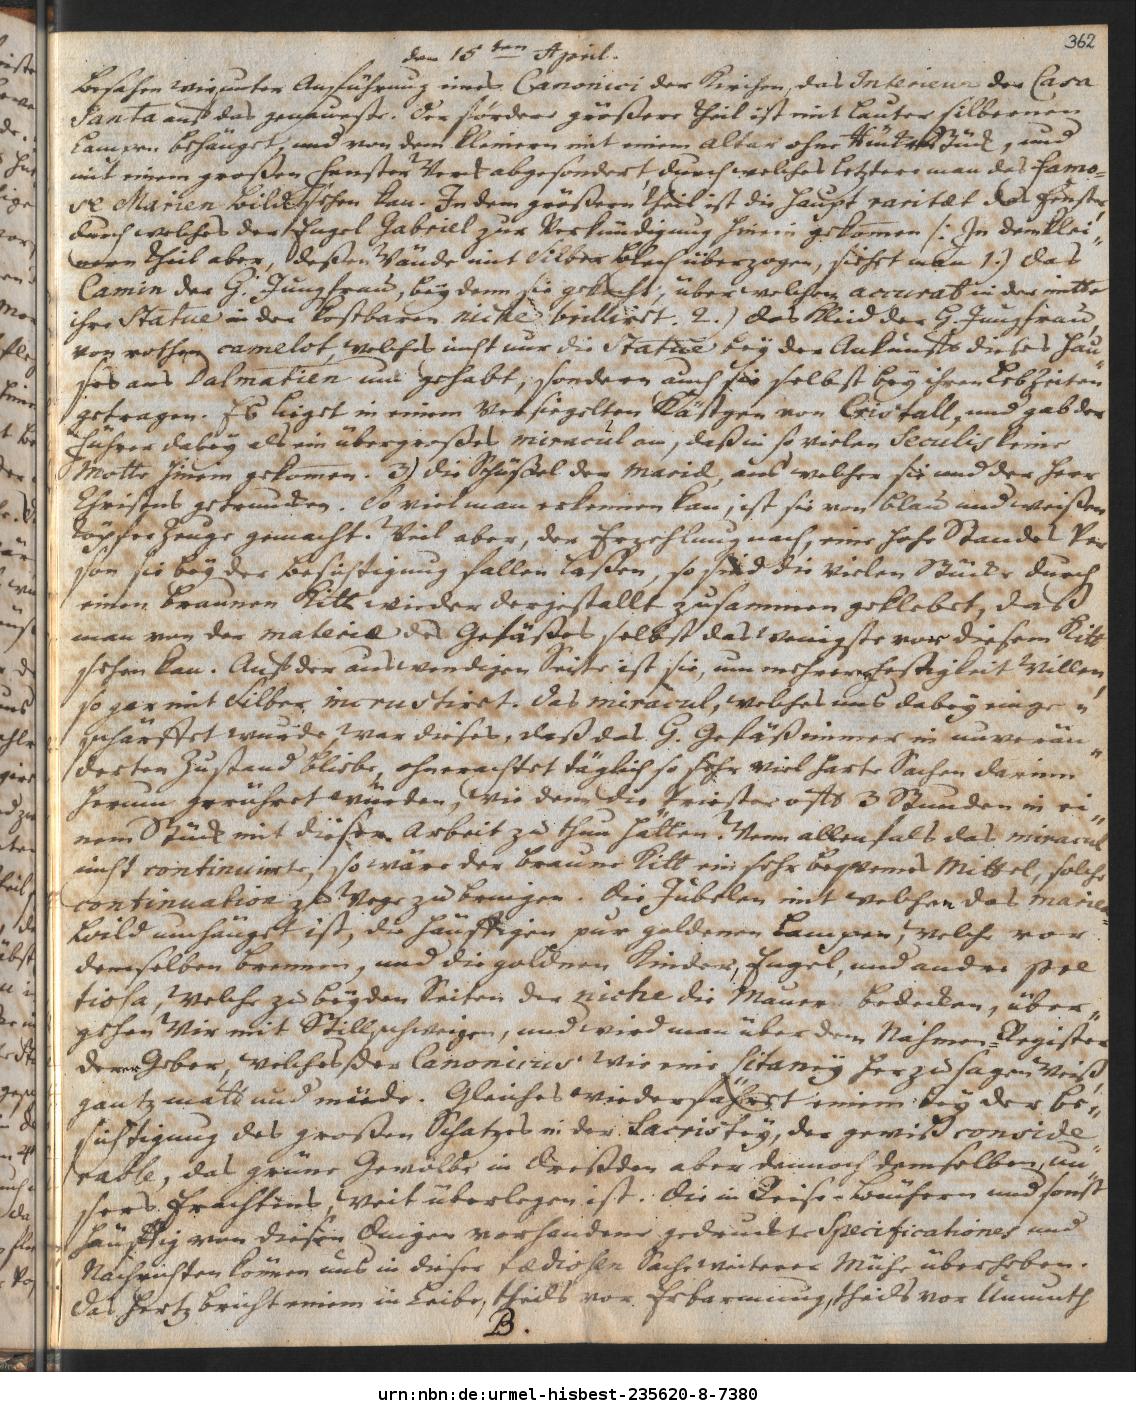 362
den 15 ten April.
Besahen wir unter Anführung eines Canonici der Kirchen, das Interieur der Casa
Santa auf das genaueste. Der fördere größere Theil ist mit lauter silbernen
Lampen behänget, und von dem kleinern mit einem Altar ohne Stück, und
mit einem großen Fenster Werk abgesondert, durch welches letztere man das famo=
se Marien Bild sehen kan. In dem größern Theil ist die Haupt raritæt das Fenster,
durch welches der Engel Gabriel zur Verkündigung hinein gekomen /: In dem klei„
nern Theil aber, deßen Wände mit Silber Blech überzogen, siehet man 1.) das
Camin der H. Jungfrau, bey dem sie gekocht, über welchem accurat in der mitte
ihre Statue in der kostbaren niche brilliret. 2.) das Kleid der H. Jungfrau,
von rothen camelot, welches nicht nur die Statue bey der Ankunft dieses Hau„
ses aus Dalmatien um gehabt, sondern auch sie selbst bey ihren Lebzeiten
getragen. Es lieget in einem versiegelten Kästgen von Cristall, und gab der
Führer dabey als ein übergroßes miracul an, daß in so vielen Seculis keine
Motte hinein gekomen. 3) die Schüßel der Marie, aus welcher sie und der Herr
Christus getruncken. So viel man erkennen kan, ist sie von blau und weißen
töpfer Zeuge gemacht. Weil aber, der Erzehlung nach, eine hohe Standes Per
son sie bey der Besichtigung fallen laßen, so sind die vielen Stücke durch
einen braunen Kitt wieder dergestallt zusammen geklebet, daß
man von der materie des Gefäßes selbst das wenigste vor diesem Kitt
sehen kan. Auf der auswendigen Seite ist sie, um mehrerer Festigkeit willen,
so gar mit Silber incrustiret. Das miracul, welches uns dabey einge„
schärffet wurde, war dieses, daß das H. Gefäß immer in unverän„
derten Zustand bliebe, ohnerachtet täglich so sehr viel harte Sachen darinn
herum gerühret würden, wie denn die Priester oft 3 Stunden in ei„
nem Stück mit dieser Arbeit zu thun hätten. Wenn allenfals das miracul
nicht continuirte, so wäre der braune Kitt ein sehr bequemes Mittel, solche
continuation zu Wege zu bringen. Die Jubelen mit welchen das Marien=
Bild umhänget ist, die häuffigen pur goldenen Lampen, welche vor
demselben brennen, und die goldnen Kinder, Engel, und andre pre
tiosa, welche zu beyden Seiten der niche die Mauer bedecken, über„
gehen wir mit Stillschweigen, und wird man über dem Nahmen=Register
derer Geber, welches der Canonicus wie eine Litaney herzusagen weiß,
gantz matt und müede. Gleiches wiederfähret einem bey der Be„
sichtigung des großen Schatzes in der Sacristey, der gewiß conside
rable, das grüne Gewölbe in Dreßden aber dennoch demselben, un„
sers Erachtens, weit überlegen ist. Die in Reise=Büchern und sonst
häuffig von diesen Dingen vorhandene gedruckte Specificationes und
Nachrichten können uns in dieser tædiosen Sache weiterer Mühe überheben.
Das Hertz bricht einem im Leibe, theils vor Erbarmung, theils vor Unmuth
B.
urn:nbn:de:urmel-hisbest-235620-8-7380